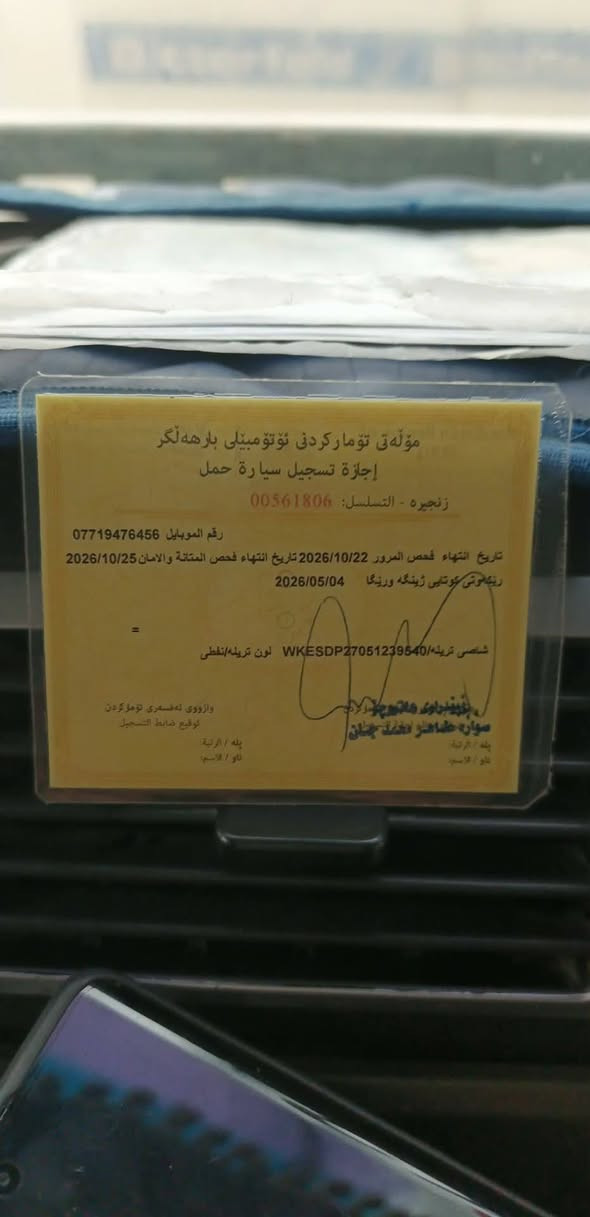 مۆڵەتی تۆمارکردنی ئۆتۆمبێلی بارهەڵگر
إجازة تسجيل سيارة حمل
زنجیرە - التسلسل: 00561806
رقم الموبايل 07719476456
تاريخ انتهاء فحص المرور 2026/10/22 تاريخ انتهاء فحص المتانة والامان 2026/10/25
رێکەوتی کوتایی ژینگە ورێگا 2026/05/04
=
شاصی تریلە/WKESDP27051239540 لون تریلە/نفطی
واژووی ئەفسەری تۆمارکردن
توقيع ضابط التسجيل
سوارە طاهر محمد
پلە / الرتبة:
ناو / الاسم:
پلە / الرتبة:
ناو / الاسم: